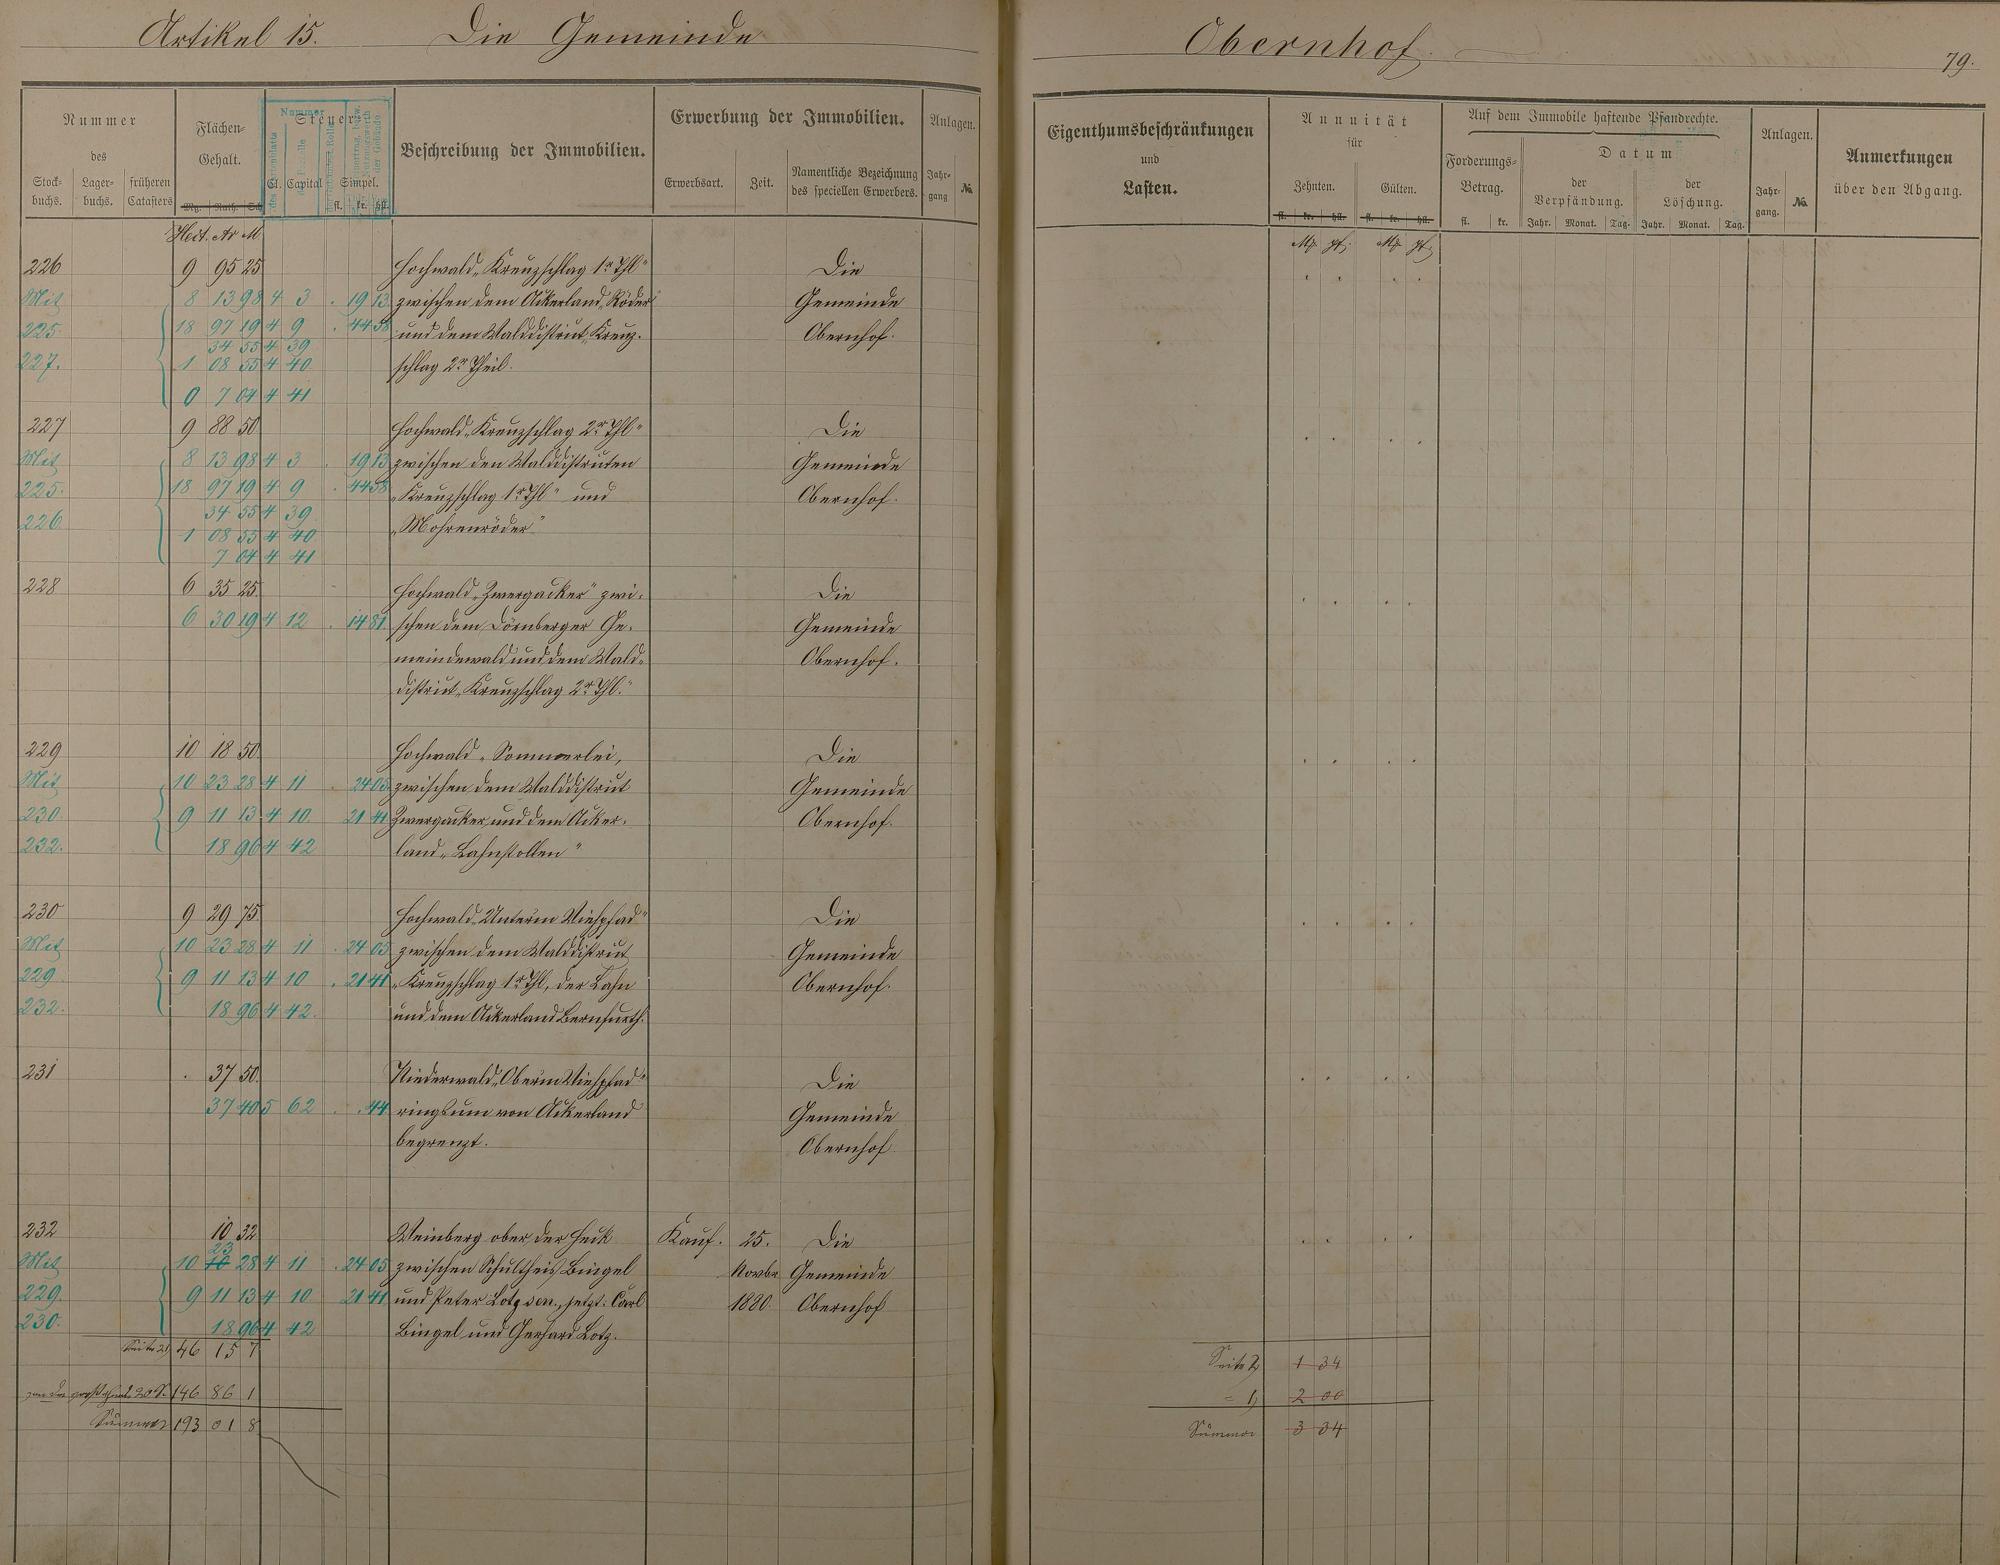 Artikel 15. Die Gemeinde
Obernhof.
79.
Nummer
des
Stock-
buchs.
Lager-
buchs.
früheren
Catasters
Flächen-
Gehalt.
Mg. Ruth. Sch.
Steuer
Nummer
Cl. Capital Simpel.
fl. kr. hll.
Beschreibung der Immobilien.
Erwerbung der Immobilien.
Erwerbsart. Zeit.
Namentliche Bezeichnung
des speciellen Erwerbers.
Anlagen.
Jahr-
gang
№
Eigenthumsbeschränkungen
und
Lasten.
Annuität
für
Zehnten. Gülten.
fl. kr. hll. fl. kr. hll.
Auf dem Immobile haftende Pfandrechte.
Forderungs-
Betrag.
fl. kr.
Datum
der
Verpfändung.
Jahr. Monat. Tag.
der
Löschung.
Jahr. Monat. Tag.
Anlagen.
Jahr-
gang.
№
Anmerkungen
über den Abgang.
Hect. Ar M
226 9 95 25 Hochwald „Kreuzschlag 1r Thl“ Die
Mit 8 13 98 4 3 . 19 13 zwischen dem Ackerland „Röder“ Gemeinde
225. 18 97 19 4 9 . 44 58 und dem Walddistrict „Kreuz- Obernhof.
34 55 4 39
227. 1 08 55 4 40 schlag 2r Theil.
0 7 04 4 41
227 9 88 50 Hochwald „Kreuzschlag 2r Thl“ Die
Mit 8 13 98 4 3 . 19 13 zwischen den Walddistricten Gemeinde
225. 18 97 19 4 9 . 44 58 „Kreuzschlag 1r Thl“ und Obernhof.
34 55 4 39
226 1 08 55 4 40 „Mohrenröder“
7 04 4 41
228 6 35 25 Hochwald „Zwergacker“ zwi- Die
6 30 19 4 12 . 14 81 schen dem Dörnberger Ge- Gemeinde
meindewald und dem Wald- Obernhof.
district „Kreuzschlag 2r Thl.“
229 10 18 50 Hochwald „Sommerlei, Die
Mit 10 23 28 4 11 . 24 05 zwischen dem Walddistrict Gemeinde
230. 9 11 13 4 10 21 41 Zwergacker und dem Acker- Obernhof.
232. 18 96 4 42 land „Lahnstollen“
230 9 29 75 Hochwald „Unterm Viehpfad“ Die
Mit 10 23 28 4 11 . 24 05 zwischen dem Walddistrict Gemeinde
229. 9 11 13 4 10 . 21 41 „Kreuzschlag 1r Thl, der Lahn Obernhof.
232. 18 96 4 42. und dem Ackerland Bernfurth.
231 . 37 50 Niederwald „Oberm Viehpfad“ Die
37 40 5 62 . . 44 ringsum von Ackerland Gemeinde
begrenzt. Obernhof
232 10 32 Weinberg ober der Heck Kauf. 25. Die
23
Mit 10 10 28 4 11 . 24 05 zwischen Schultheis Bingel Novbr Gemeinde
229. 9 11 13 4 10 21 41 und Peter Lotz sen., jetzt: Carl 1880. Obernhof
230. 18 96 4 42 Bingel und Gerhard Lotz.
Seite 2) 46 15 7
146 86 1
Summa 193 01 8
Seite 2) 1 34
= 1) 2 00
Summa 3 34